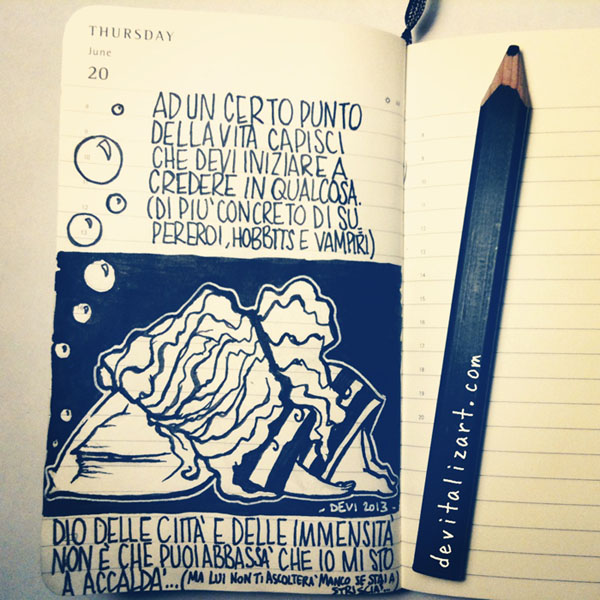 THURSDAY
June
20
AD UN CERTO PUNTO
DELLA VITA CAPISCI
CHE DEVI INIZIARE A
CREDERE IN QUALCOSA.
(DI PIU' CONCRETO DI SU
PEREROI, HOBBITS E VAMPIRI)
- DEVI 2013 -
DIO DELLE CITTA' E DELLE IMMENSITA'
NON È CHE PUOI ABBASSA' CHE IO MI STO
A ACCALDA'... (MA LUI NON TI ASCOLTERA' MANCO SE STAI A
STRISCIA'...
devitalizart.com